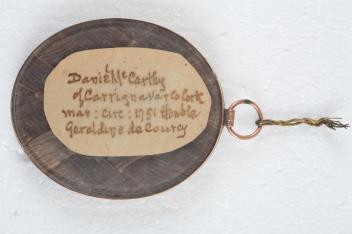 Daniel McCarthy
of Carrignavar Co Cork
mar: circ: 1751 Honble
Geraldine de Courcy